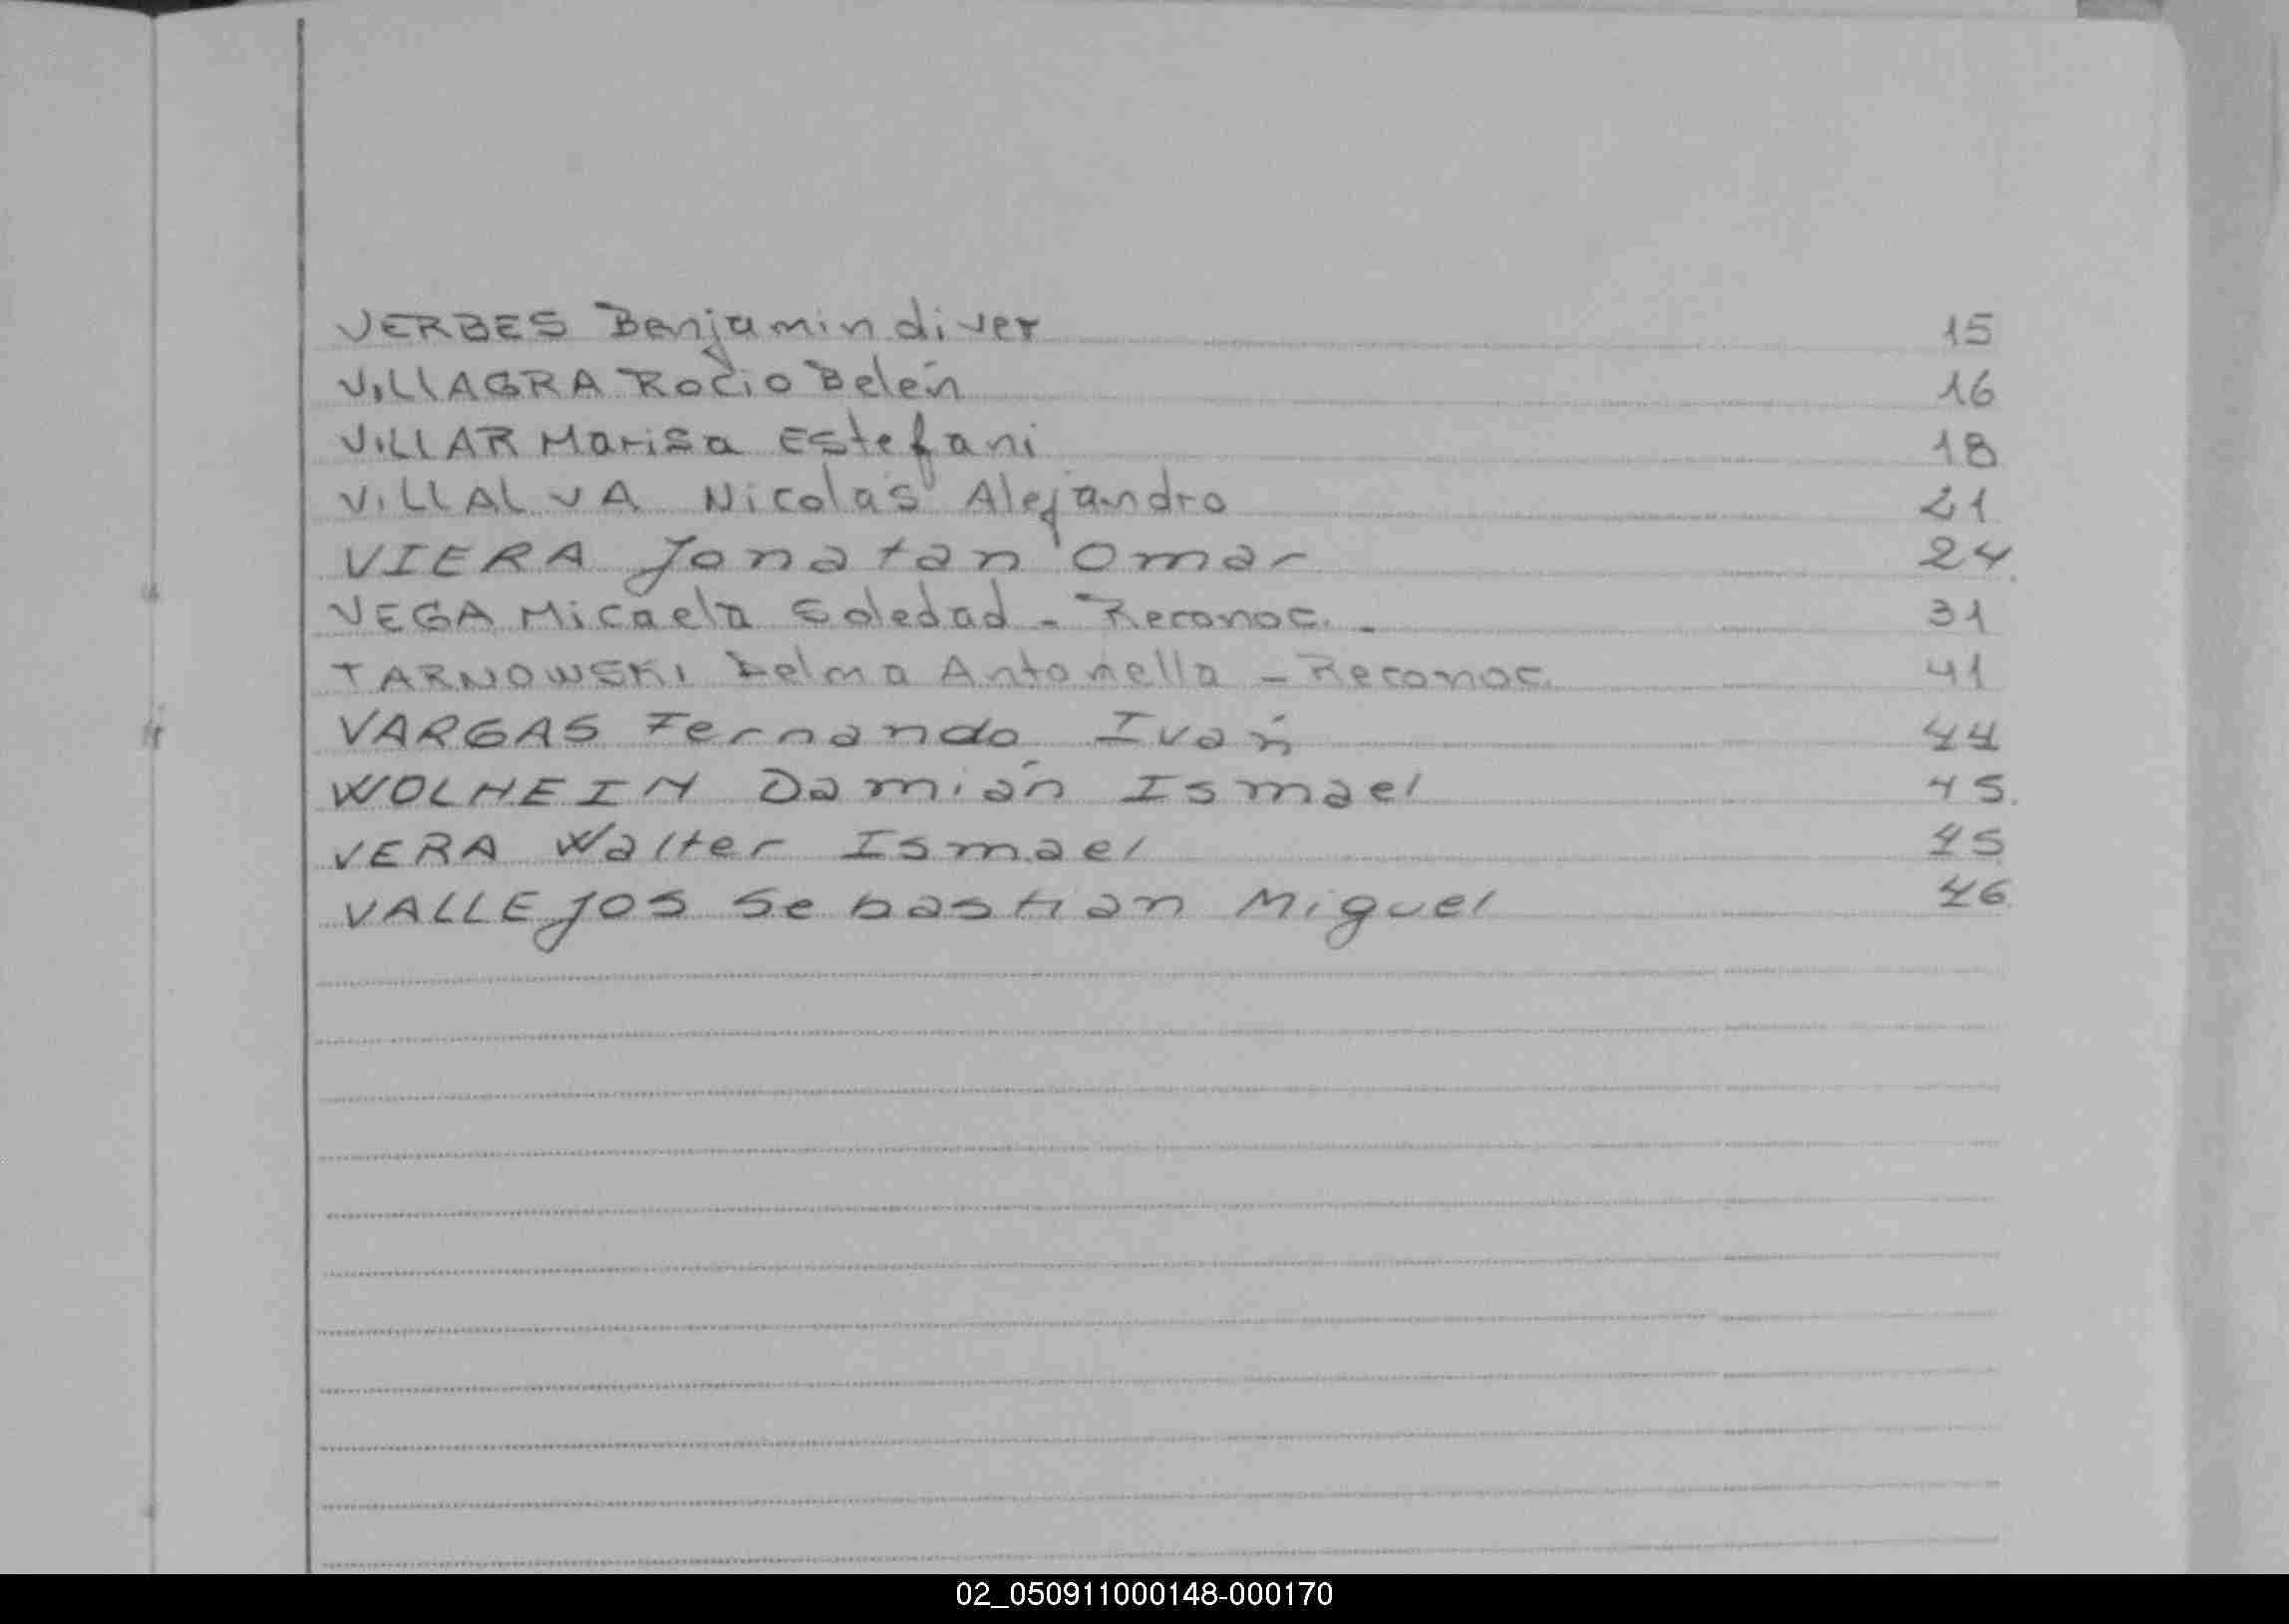 VERBES Benjamin diver 15
VILLAGRA Rocío Belén 16
VILLAR Marisa Estefani 18
VILLALVA Nicolas Alejandro 21
VIERA Jonatan Omar 24
VEGA Micaela Soledad - Reconoc. - 31
TARNOWSKI Delma Antonella - Reconoc. 41
VARGAS Fernando Iván 44
WOLHEIN Damián Ismael 45.
VERA Walter Ismael 45
VALLEJOS Sebastian Miguel 46
02_050911000148-000170